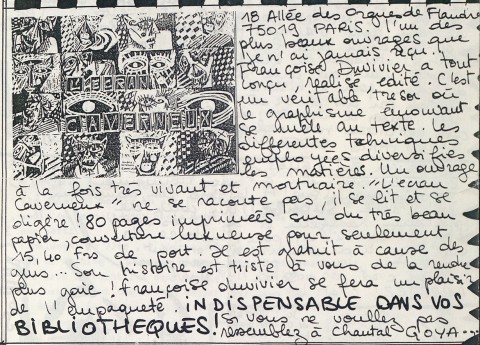 L'ECRAN
CAVERNEUX
18 Allée des Orgues de Flandre
75019 PARIS. L'un des
plus beaux ouvrages que
je n'ai jamais reçu!
Françoise Duvivier a tout
conçu, réalisé edité. C'est
un véritable trésor où
le graphisme émouvant
se mêle au texte. Les
differentes techniques
employées diversifiés
les matières. Un ouvrage
à la fois très vivant et mortuaire. "L'ecran
Caverneux" ne se raconte pas, il se lit et se
digère! 80 pages imprimées sur du très beau
papier, couverture luxueuse pour seulement
15,40 Frs de port. Il est gratuit à cause des
gens... Son histoire est triste à vous de la rendre
plus gaie! françoise duvivier se fera un plaisir
de l'empaqueté. INDISPENSABLE DANS VOS
BIBLIOTHEQUES! Si vous ne voullez pas
ressemblez à Chantal GOYA...